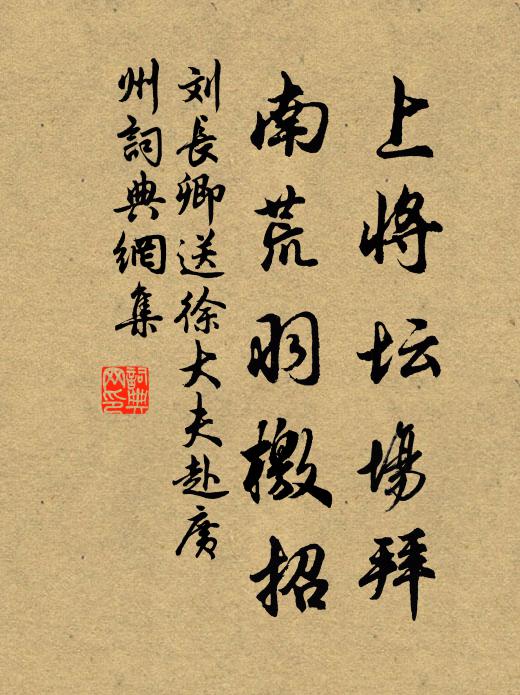 上将坛場拜
南荒羽檄招
刘長卿送徐大夫赴廣
州詞典網集
詞典
网印